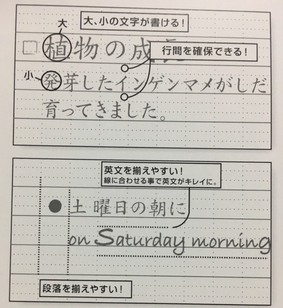 大
大、小の文字が書ける!
□植物の成長
行間を確保できる!
小
発芽したインゲンマメがしだ
育ってきました。
英文を揃えやすい!
線に合わせる事で英文がキレイに。
●土曜日の朝に
on Saturday morning
段落を揃えやすい!